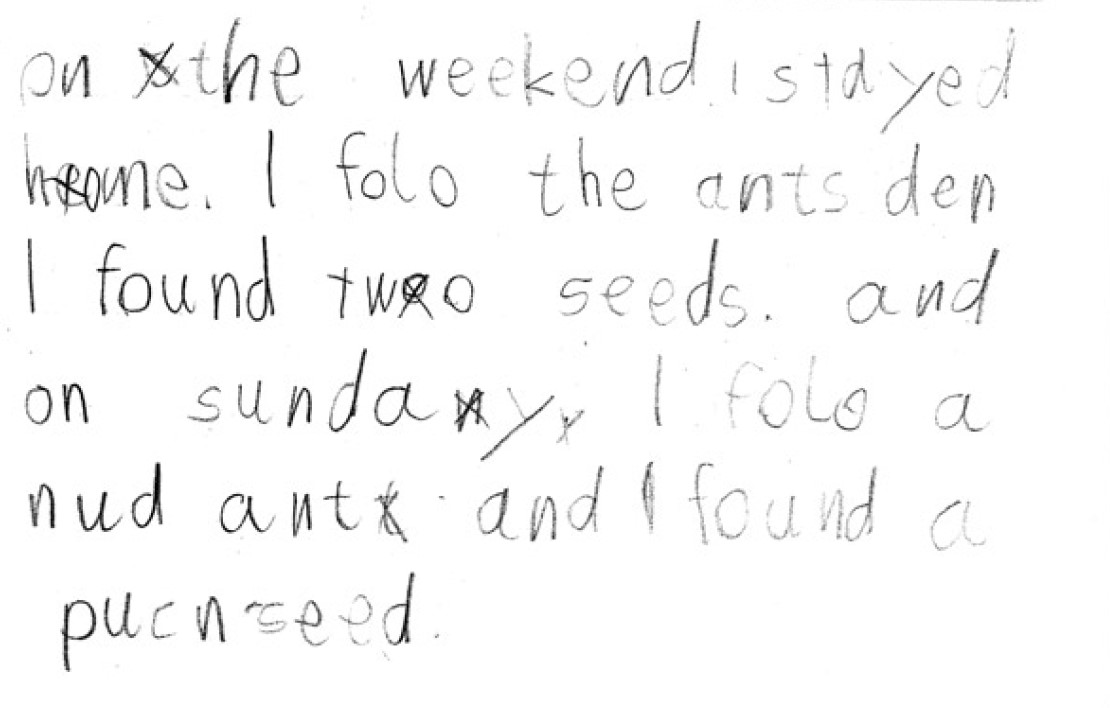 on the weekend i stayed
home. I folo the ants den
I found two seeds. and
on sunday, I folo a
nud ant and I found a
pucnseed.